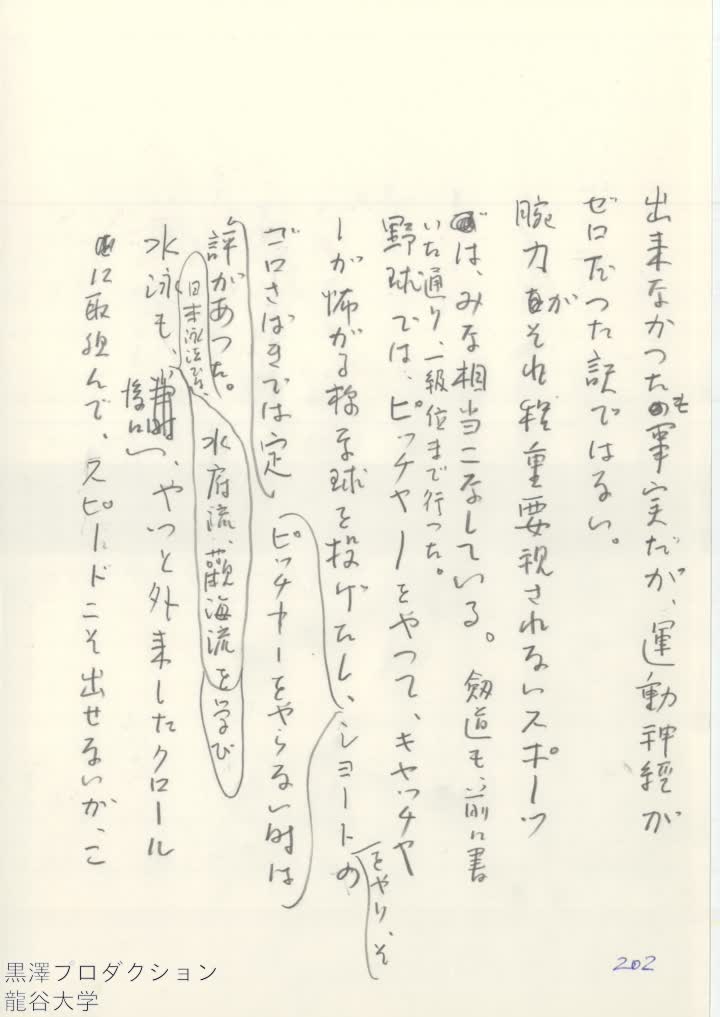 出来なかつたのも事実だが、運動神経が
ゼロだつた訳ではない。
腕力がそれ程重要視されないスポーツ
では、みな相当こなしている。剱道も、前に書
いた通り、一級位まで行つた。
野球では、ピッチャーをやつて、キャッチャ
ーが怖がる様な球を投げたし、ショートの
をやり、そ
ピッチャーをやらない時は
ゴロさばきでは定
評があつた。
日本泳法では、
水府流、観海流を学び
水泳も、
後に、やつと外来したクロール
に取組んで、スピードこそ出せないが、こ
202
黒澤プロダクション
龍谷大学